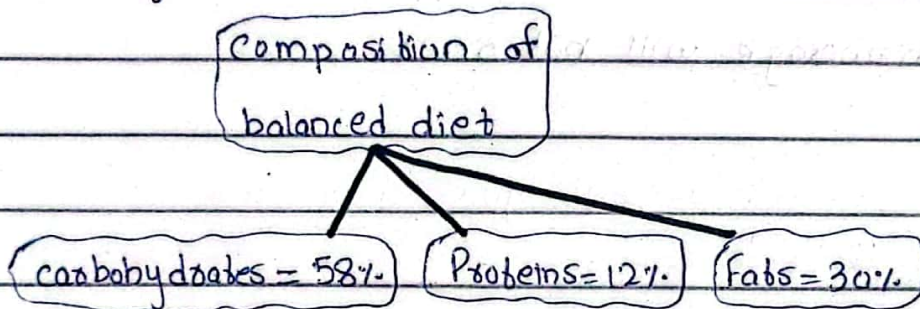 composition of
balanced diet
carbohydrates = 58%.
Proteins = 12%.
Fats = 30%.